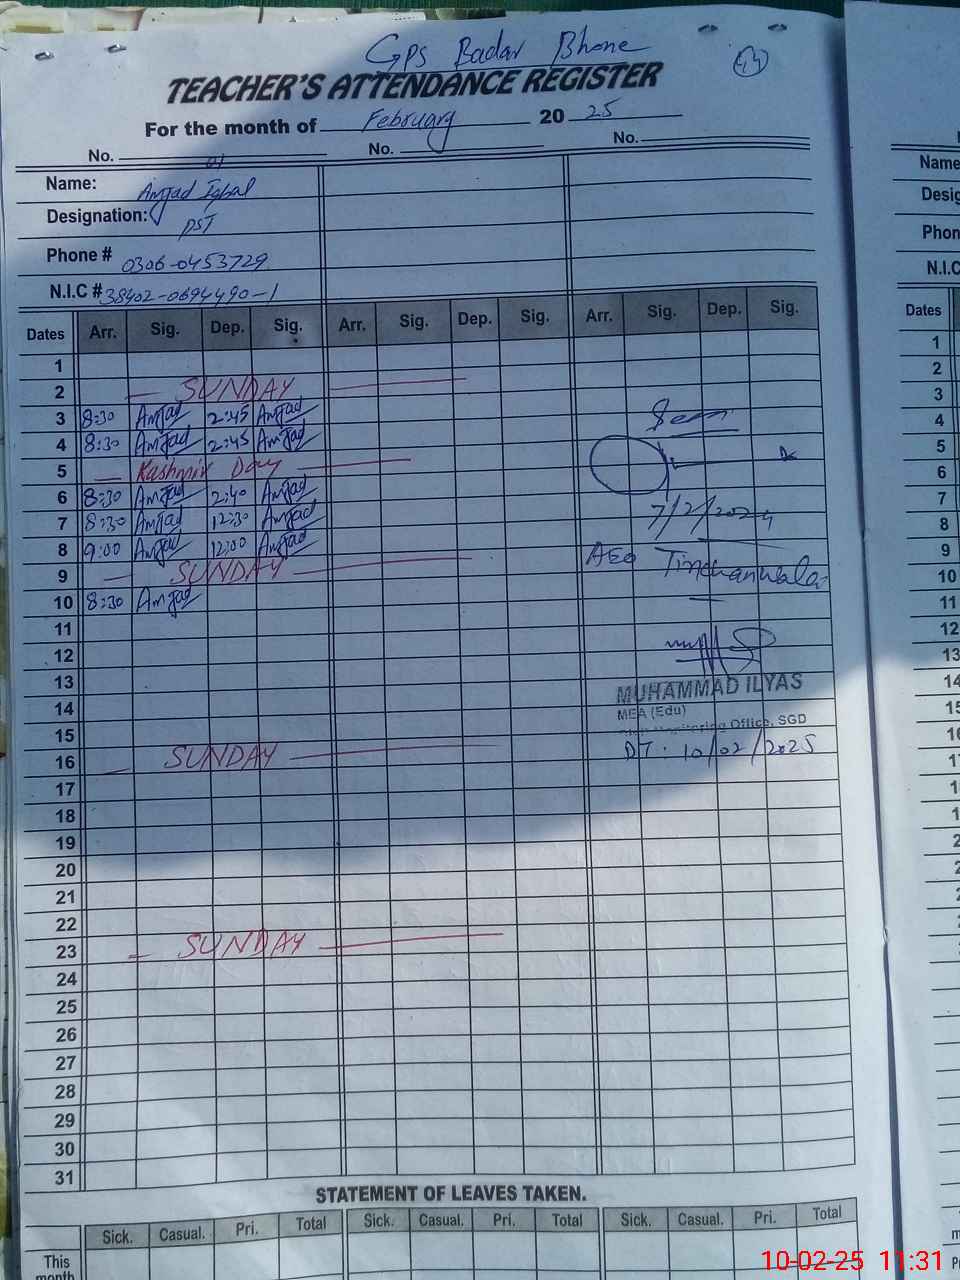 GPS Badar Bhone
44
TEACHER'S ATTENDANCE REGISTER
For the month of February 20 25
No. 01 No. No.
Name: Amjad Iqbal
Designation: PST
Phone # 0306-0453729
N.I.C # 38402-0694490-1
Dates Arr. Sig. Dep. Sig. Arr. Sig. Dep. Sig. Arr. Sig. Dep. Sig.
1
2 — SUNDAY —
3 8:30 Amjad 2:45 Amjad
4 8:30 Amjad 2:45 Amjad
Seen
5 — Kashmir Day —
6 8:30 Amjad 2:40 Amjad
7 8:30 Amjad 12:30 Amjad
7/2/2024
8 9:00 Amjad 12:00 Amjad
AEO
9 — SUNDAY —
10 8:30 Amjad
11
12
13
MUHAMMAD ILYAS
14
MEA (Edu)
Office, SGD
15
DT. 10/02/2025
16 — SUNDAY —
17
18
19
20
21
22
23 — SUNDAY —
24
25
26
27
28
29
30
31
STATEMENT OF LEAVES TAKEN.
Sick. Casual. Pri. Total Sick. Casual. Pri. Total Sick. Casual. Pri. Total
This
month
Name
Desig
Phon
N.I.C
Dates
1
2
3
4
5
6
7
8
9
10
11
12
13
14
10-02-25 11:31